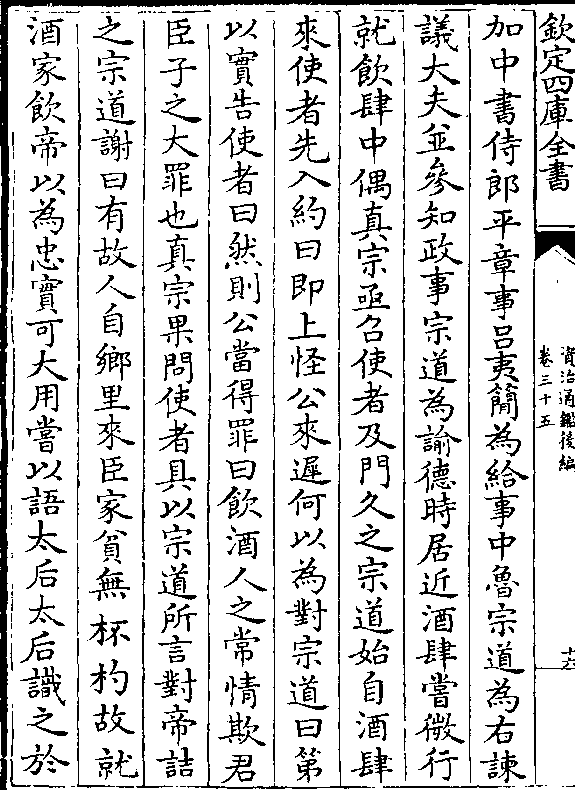 欽定四庫全書
資治通鑑後編
卷三十五
加中書侍郎平章事呂夷簡為給事中魯宗道為右諫
議大夫並參知政事宗道為諭德時居近酒肆嘗微行
就飲肆中偶真宗亟召使者及門久之宗道始自酒肆
來使者先入約曰即上怪公來遲何以為對宗道曰第
以實告使者曰然則公當得罪曰飲酒人之常情欺君
臣子之大罪也真宗果問使者具以宗道所言對帝詰
之宗道謝曰有故人自鄉里來臣家貧無杯杓故就
酒家飲帝以為忠實可大用嘗以語太后太后識之於